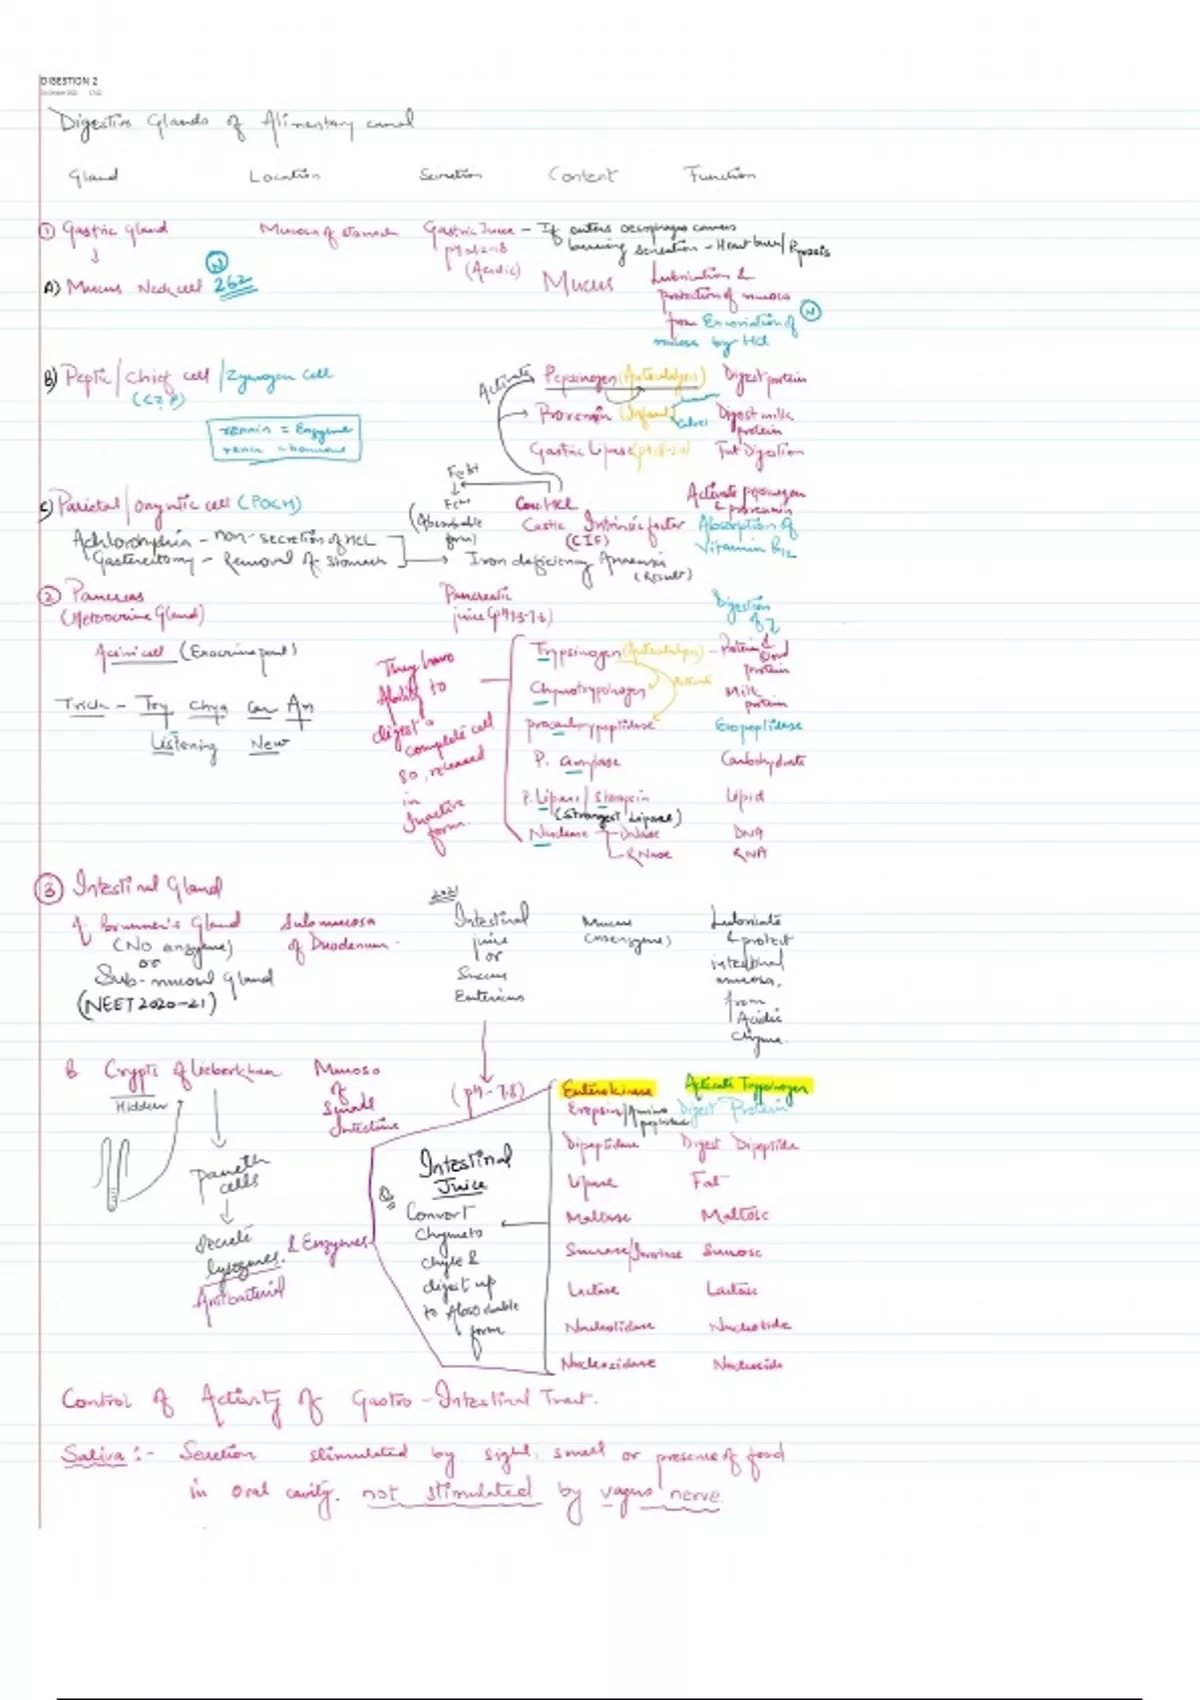 DIGESTION 2
Digestive Glands of Alimentary canal
Gland Location Secretion Content Function
① Gastric gland Mucosa of stomach Gastric Juice – If enters oesophagus causes
burning sensation – Heart burn/Pyrosis
(Acidic)
A) Mucus Neck cell 262 N
Mucus Lubrication &
protection of mucosa
from Excoriation of N
mucosa by HCl
B) Peptic/Chief cell/Zymogen cell
(CZP)
Activate Pepsinogen (Autocatalysis) Digest protein
Prorennin (Infant) Calves Digest milk
protein
Gastric Lipase Fat Digestion
rennin = Enzyme
renin = hormone
C) Parietal/oxyntic cell (POCH)
Fe3+
Fe2+
(Absorbable
form)
HCl Activate pepsinogen
& prorennin
Castle Intrinsic factor Absorption of
(CIF) Vitamin B12
Achlorohydria – non-secretion of HCL
Gasterectomy – Removal of stomach Iron deficiency Anaemia
(Result)
② Pancreas Pancreatic
(Heterocrine Gland) juice
Digestion
of
Acini cell (Exocrine part)
They have
Ability to
digest a
complete cell
so, released
in
Inactive
form.
Trypsinogen (Autocatalysis) – Protein &
Blood
protein
Activate
Chymotrypsinogen Milk
protein
procarboxypeptidase Exopeptidase
P. amylase Carbohydrate
P. Lipase/Steapsin Lipid
(Strongest Lipase)
Nuclease DNase DNA
RNase RNA
Trick – Try Chya Car Am
Listening New
③ Intestinal Gland
Brunner's Gland Submucosa
(No enzyme) of Duodenum.
or
Sub-mucosal Gland
(NEET 2020-21)
2021
Intestinal
juice
or
Succus
Entericus
Mucus
Lubricate
& protect
intestinal
mucosa,
from
Acidic
chyme.
B Crypts of Lieberkhun Mucosa
Hidden of
Small
Intestine
(pH – 7.8)
paneth
cells
secrete
lysozymes. & Enzymes
Antibacterial
Intestinal
Juice
Convert
chyme to
chyle &
digest up
to Absorbable
form
Enterokinase Activate Trypsinogen
Erepsin/Amino Digest Protein
peptidase
Dipeptidase Digest Dipeptide
Lipase Fat
Maltase Maltose
Sucrase/Invertase Sucrose
Lactase Lactose
Nucleotidase Nucleotide
Nucleosidase Nucleoside
Control of Activity of Gastro-Intestinal Tract.
Saliva :- Secretion stimulated by sight, smell or presence of food
in oral cavity. not stimulated by vagus nerve